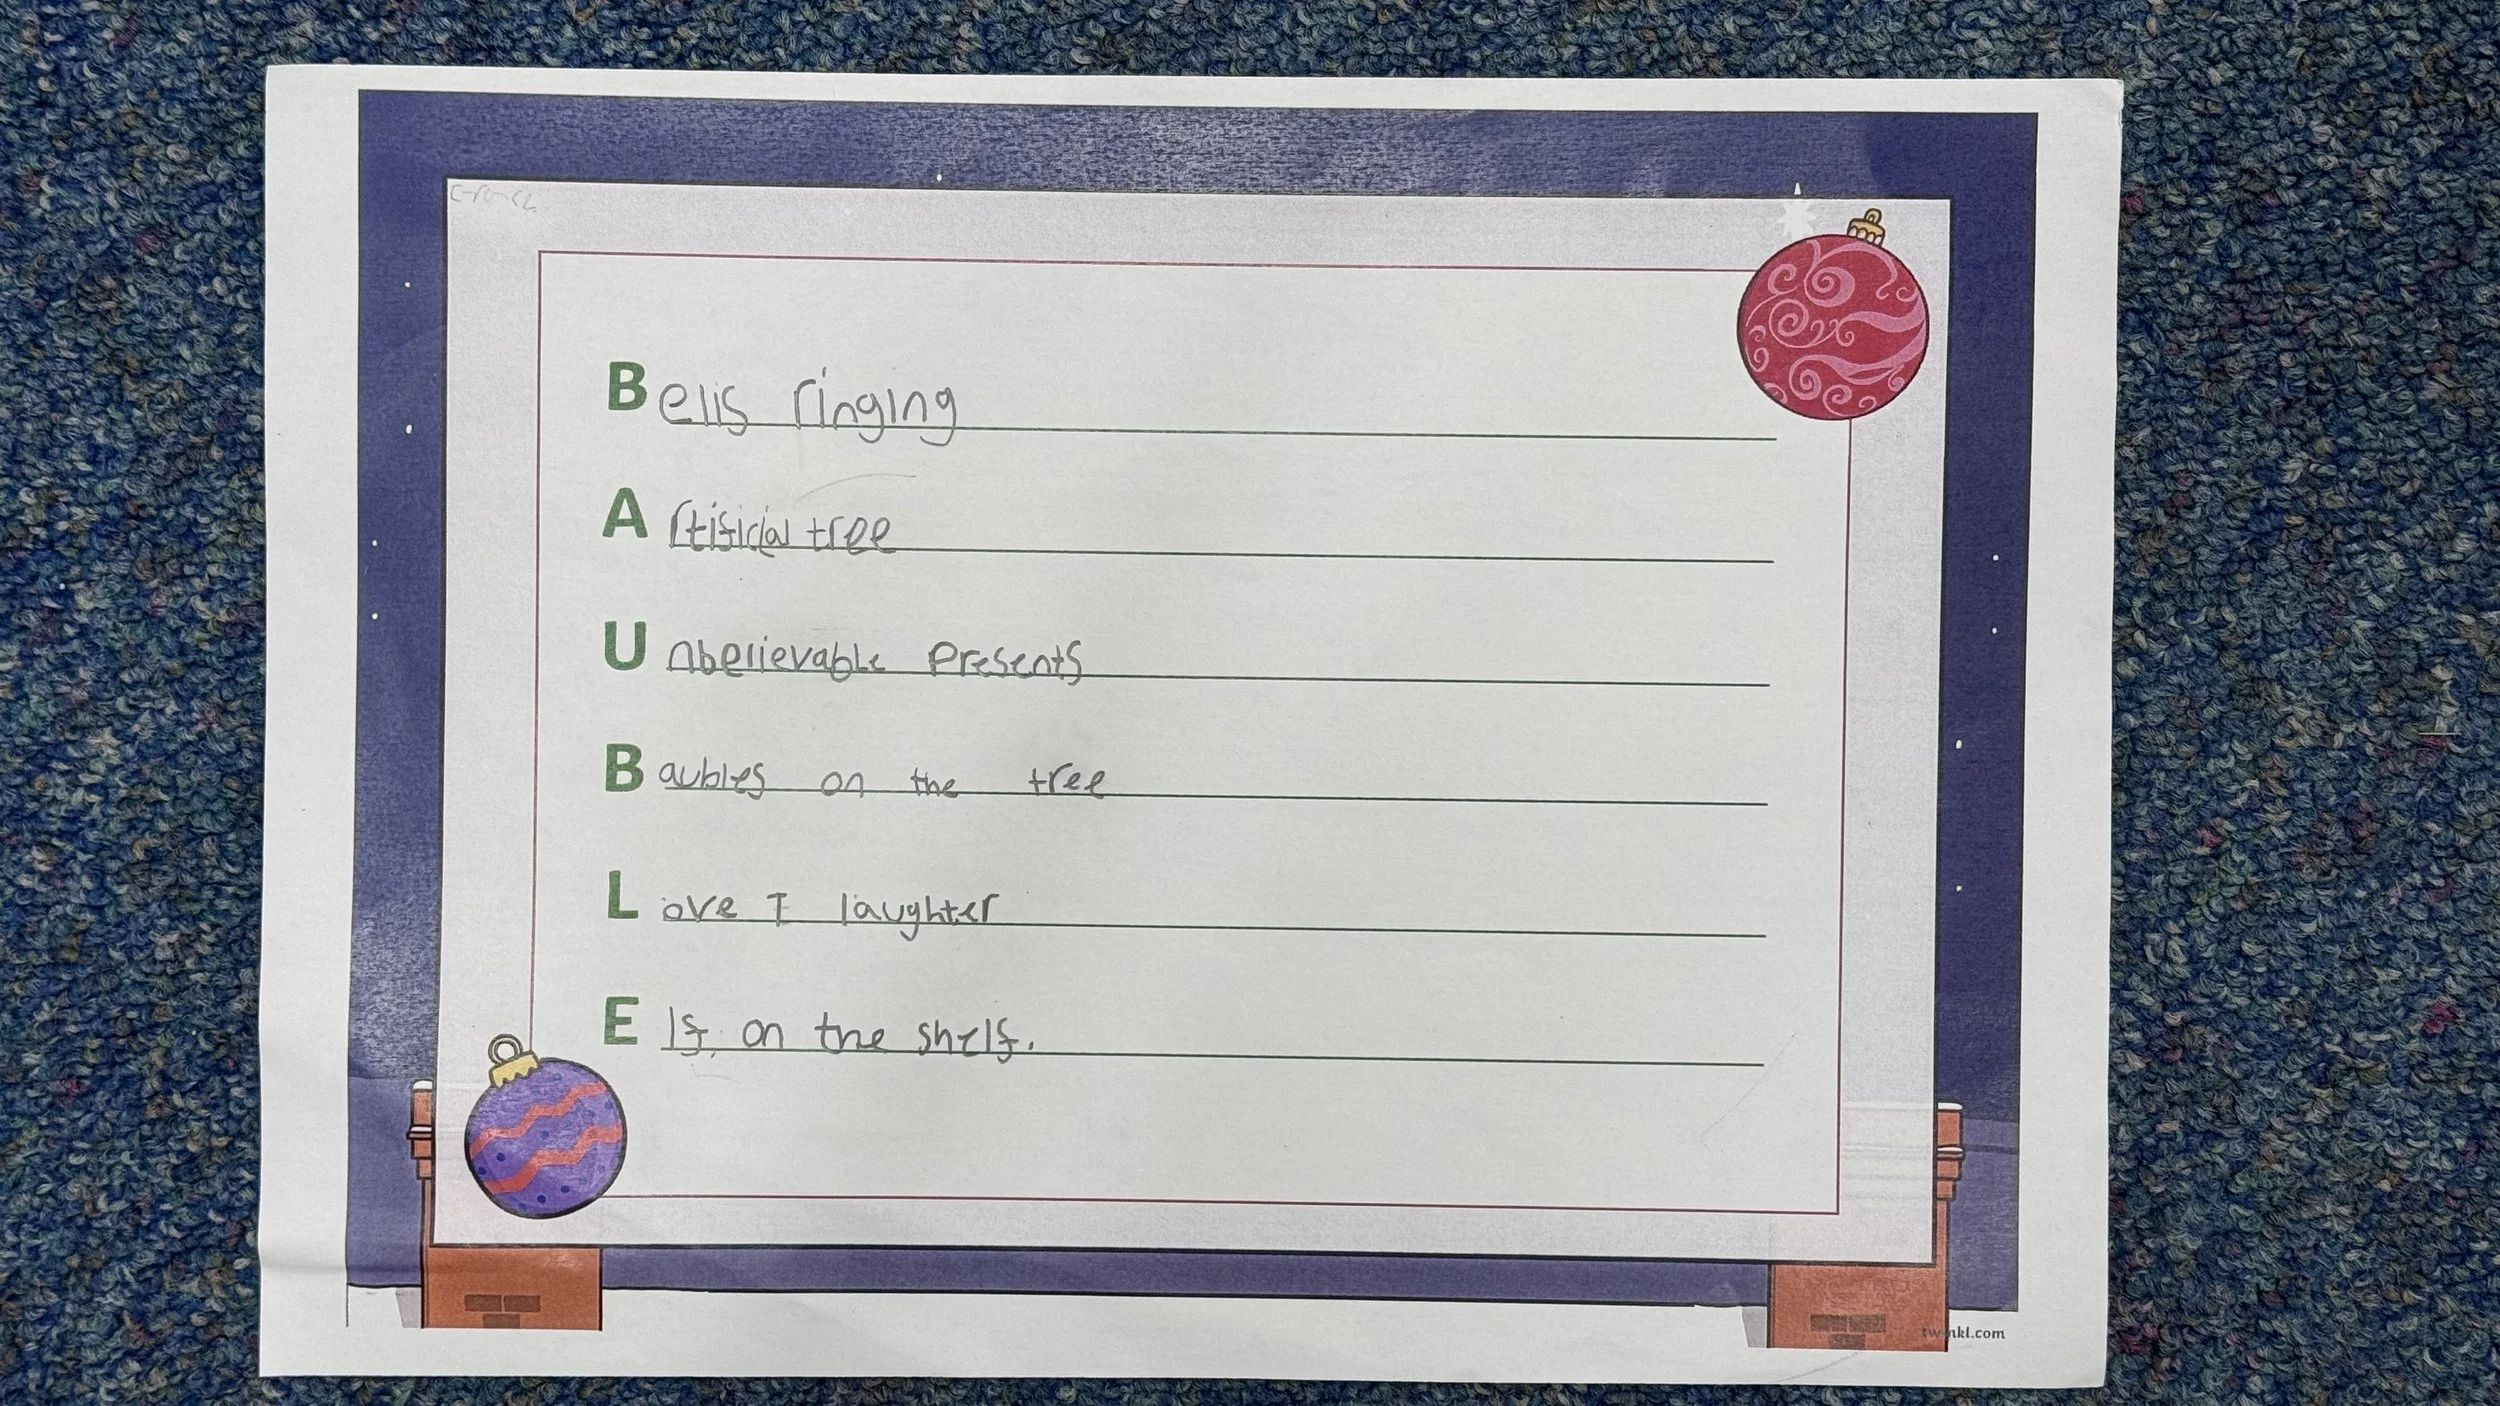 Bells ringing
Artificial tree
Unbelievable presents
Baubles on the tree
Love I laughter
Elf on the shelf.
twinkl.com